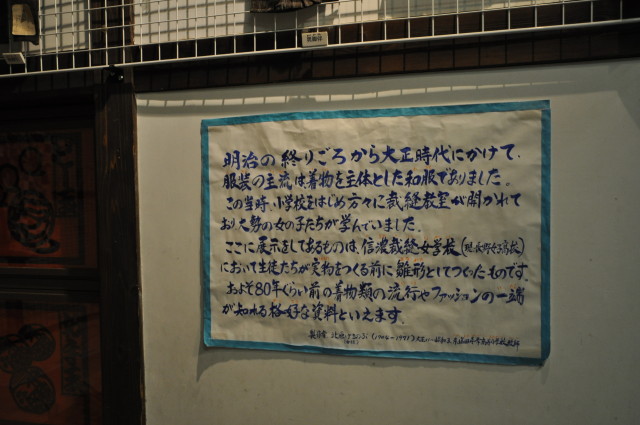 明治の終りごろから大正時代にかけて、
服装の主流は着物を主体とした和服でありました。
この当時、小学校をはじめ方々に裁縫教室が開かれて
おり大勢の女の子たちが学んでいました。
ここに展示をしてあるものは、信濃裁縫女学校(現長野女子高校)
において生徒たちが実物をつくる前に雛形としてつくったものです。
およそ80年ぐらい前の着物類の流行やファッションの一端
が知れる格好な資料といえます。